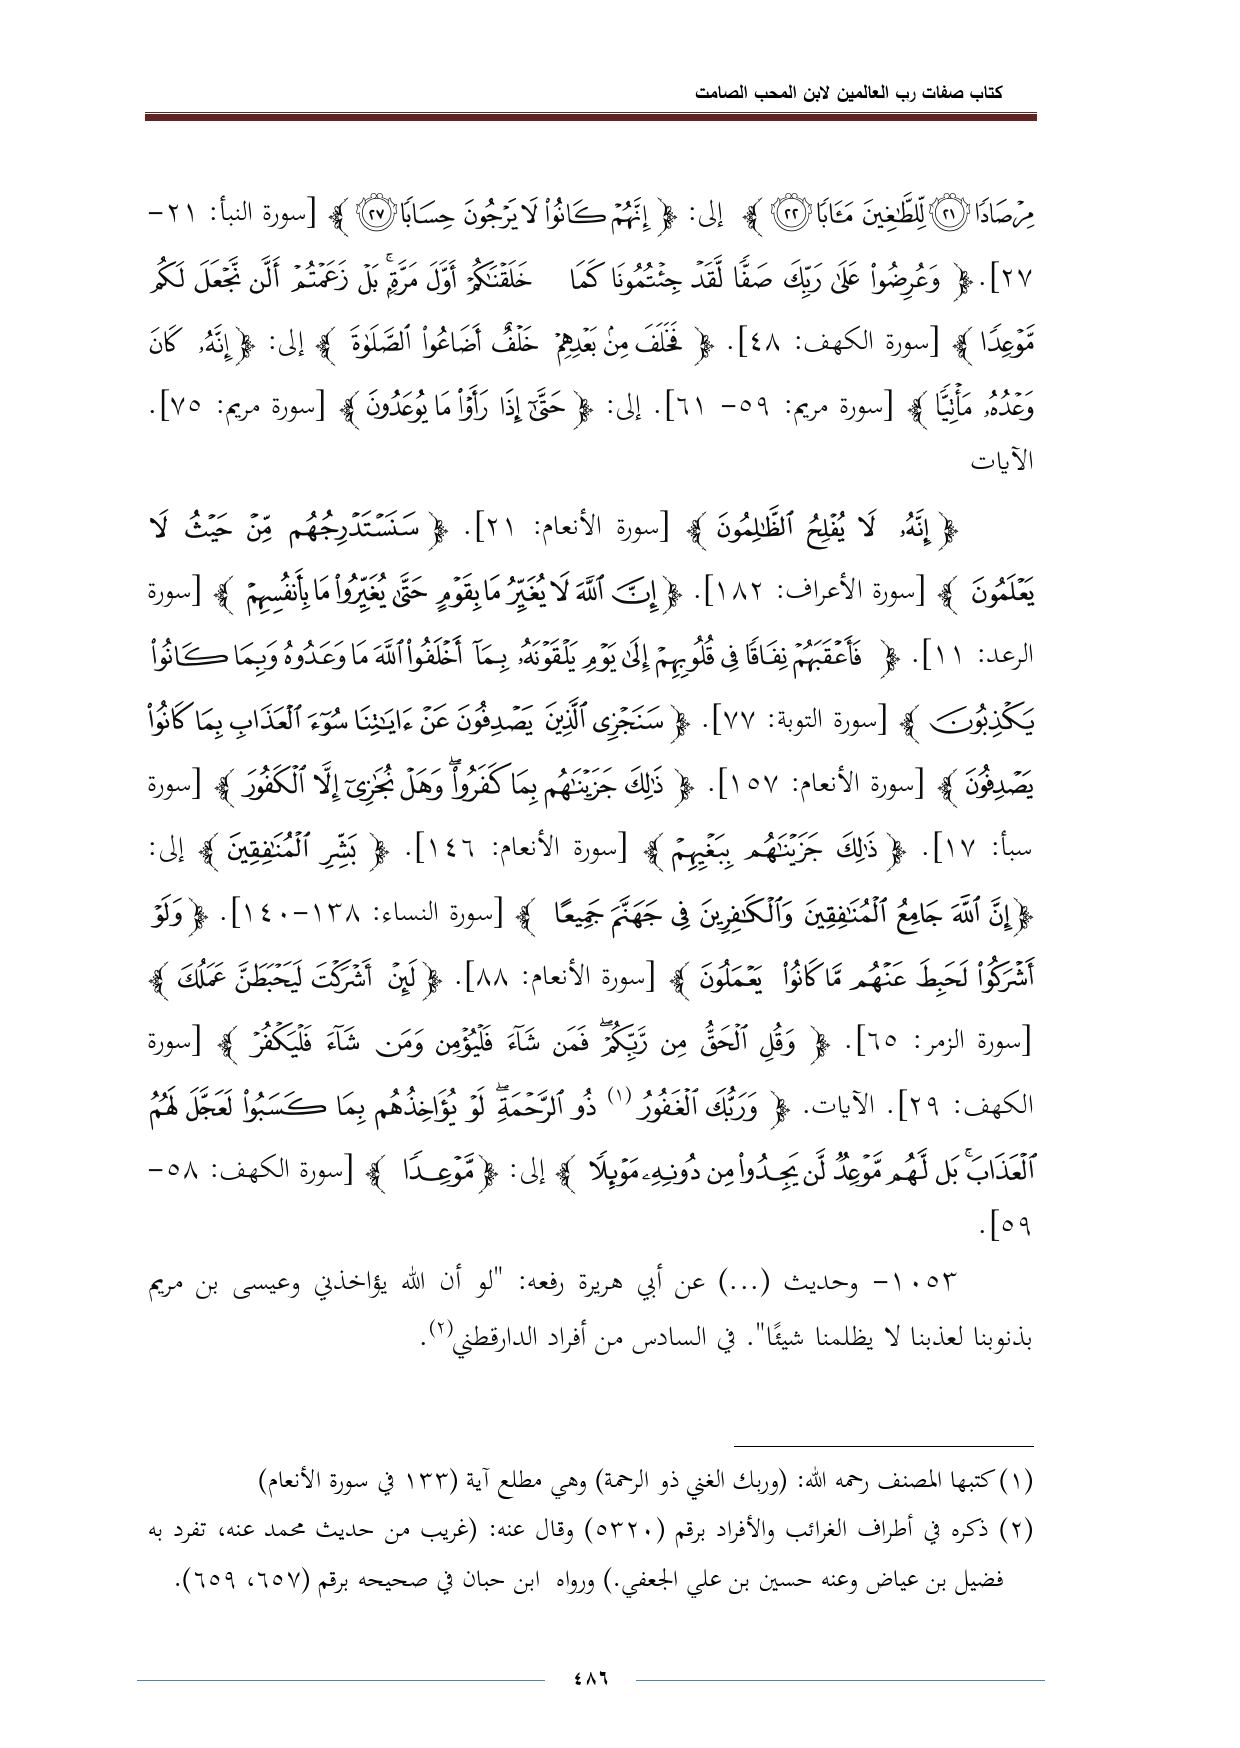 كتاب صفات رب العالمين لابن المحب الصامت
مِرْصَادًا ٢١ لِّلطَّٰغِينَ مَـَٔابًا ٢٢ ﴾ إلى: ﴿ إِنَّهُمْ كَانُوا۟ لَا يَرْجُونَ حِسَابًا ٢٧ ﴾ [سورة النبأ: ٢١-
٢٧]. ﴿ وَعُرِضُوا۟ عَلَىٰ رَبِّكَ صَفًّا لَّقَدْ جِئْتُمُونَا كَمَا خَلَقْنَٰكُمْ أَوَّلَ مَرَّةٍۭ ۚ بَلْ زَعَمْتُمْ أَلَّن نَّجْعَلَ لَكُم
مَّوْعِدًا ﴾ [سورة الكهف: ٤٨]. ﴿ فَخَلَفَ مِنۢ بَعْدِهِمْ خَلْفٌ أَضَاعُوا۟ ٱلصَّلَوٰةَ ﴾ إلى: ﴿ إِنَّهُۥ كَانَ
وَعْدُهُۥ مَأْتِيًّا ﴾ [سورة مريم: ٥٩- ٦١]. إلى: ﴿ حَتَّىٰٓ إِذَا رَأَوْا۟ مَا يُوعَدُونَ ﴾ [سورة مريم: ٧٥].
الآيات
﴿ إِنَّهُۥ لَا يُفْلِحُ ٱلظَّٰلِمُونَ ﴾ [سورة الأنعام: ٢١]. ﴿ سَنَسْتَدْرِجُهُم مِّنْ حَيْثُ لَا
يَعْلَمُونَ ﴾ [سورة الأعراف: ١٨٢]. ﴿ إِنَّ ٱللَّهَ لَا يُغَيِّرُ مَا بِقَوْمٍ حَتَّىٰ يُغَيِّرُوا۟ مَا بِأَنفُسِهِمْ ﴾ [سورة
الرعد: ١١]. ﴿ فَأَعْقَبَهُمْ نِفَاقًا فِى قُلُوبِهِمْ إِلَىٰ يَوْمِ يَلْقَوْنَهُۥ بِمَآ أَخْلَفُوا۟ ٱللَّهَ مَا وَعَدُوهُ وَبِمَا كَانُوا۟
يَكْذِبُونَ ﴾ [سورة التوبة: ٧٧]. ﴿ سَنَجْزِى ٱلَّذِينَ يَصْدِفُونَ عَنْ ءَايَٰتِنَا سُوٓءَ ٱلْعَذَابِ بِمَا كَانُوا۟
يَصْدِفُونَ ﴾ [سورة الأنعام: ١٥٧]. ﴿ ذَٰلِكَ جَزَيْنَٰهُم بِمَا كَفَرُوا۟ ۖ وَهَلْ نُجَٰزِىٓ إِلَّا ٱلْكَفُورَ ﴾ [سورة
سبأ: ١٧]. ﴿ ذَٰلِكَ جَزَيْنَٰهُم بِبَغْيِهِمْ ﴾ [سورة الأنعام: ١٤٦]. ﴿ بَشِّرِ ٱلْمُنَٰفِقِينَ ﴾ إلى:
﴿ إِنَّ ٱللَّهَ جَامِعُ ٱلْمُنَٰفِقِينَ وَٱلْكَٰفِرِينَ فِى جَهَنَّمَ جَمِيعًا ﴾ [سورة النساء: ١٣٨-١٤٠]. ﴿ وَلَوْ
أَشْرَكُوا۟ لَحَبِطَ عَنْهُم مَّا كَانُوا۟ يَعْمَلُونَ ﴾ [سورة الأنعام: ٨٨]. ﴿ لَئِنْ أَشْرَكْتَ لَيَحْبَطَنَّ عَمَلُكَ ﴾
[سورة الزمر: ٦٥]. ﴿ وَقُلِ ٱلْحَقُّ مِن رَّبِّكُمْ ۖ فَمَن شَآءَ فَلْيُؤْمِن وَمَن شَآءَ فَلْيَكْفُرْ ﴾ [سورة
الكهف: ٢٩]. الآيات. ﴿ وَرَبُّكَ ٱلْغَفُورُ (١) ذُو ٱلرَّحْمَةِ ۖ لَوْ يُؤَاخِذُهُم بِمَا كَسَبُوا۟ لَعَجَّلَ لَهُمُ
ٱلْعَذَابَ ۚ بَل لَّهُم مَّوْعِدٌ لَّن يَجِدُوا۟ مِن دُونِهِۦ مَوْئِلًا ﴾ إلى: ﴿ مَّوْعِدًا ﴾ [سورة الكهف: ٥٨-
٥٩].
١٠٥٣- وحديث (...) عن أبي هريرة رفعه: "لو أن الله يؤاخذني وعيسى بن مريم
بذنوبنا لعذبنا لا يظلمنا شيئًا". في السادس من أفراد الدارقطني(٢).
(١) كتبها المصنف رحمه الله: (وربك الغني ذو الرحمة) وهي مطلع آية (١٣٣ في سورة الأنعام)
(٢) ذكره في أطراف الغرائب والأفراد برقم (٥٣٢٠) وقال عنه: (غريب من حديث محمد عنه، تفرد به
فضيل بن عياض وعنه حسين بن علي الجعفي.) ورواه ابن حبان في صحيحه برقم (٦٥٧، ٦٥٩).
٤٨٦